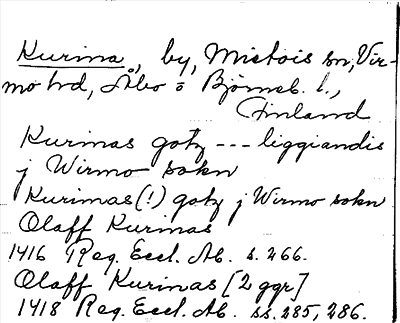 Kurina, by, Mietois sn, Vir-
mo hd, Åbo o Björneb. l.,
Finland
Kurinas gotz --- liggiandis
j Wirmo sokn
Kurimas (!) gotz j Wirmo sokn
Olaff Kurinas
1416 Reg. Eccl. Ab. s. 266.
Olaff Kurinas [2 ggr]
1418 Reg. Eccl. Ab. ss. 285, 286.